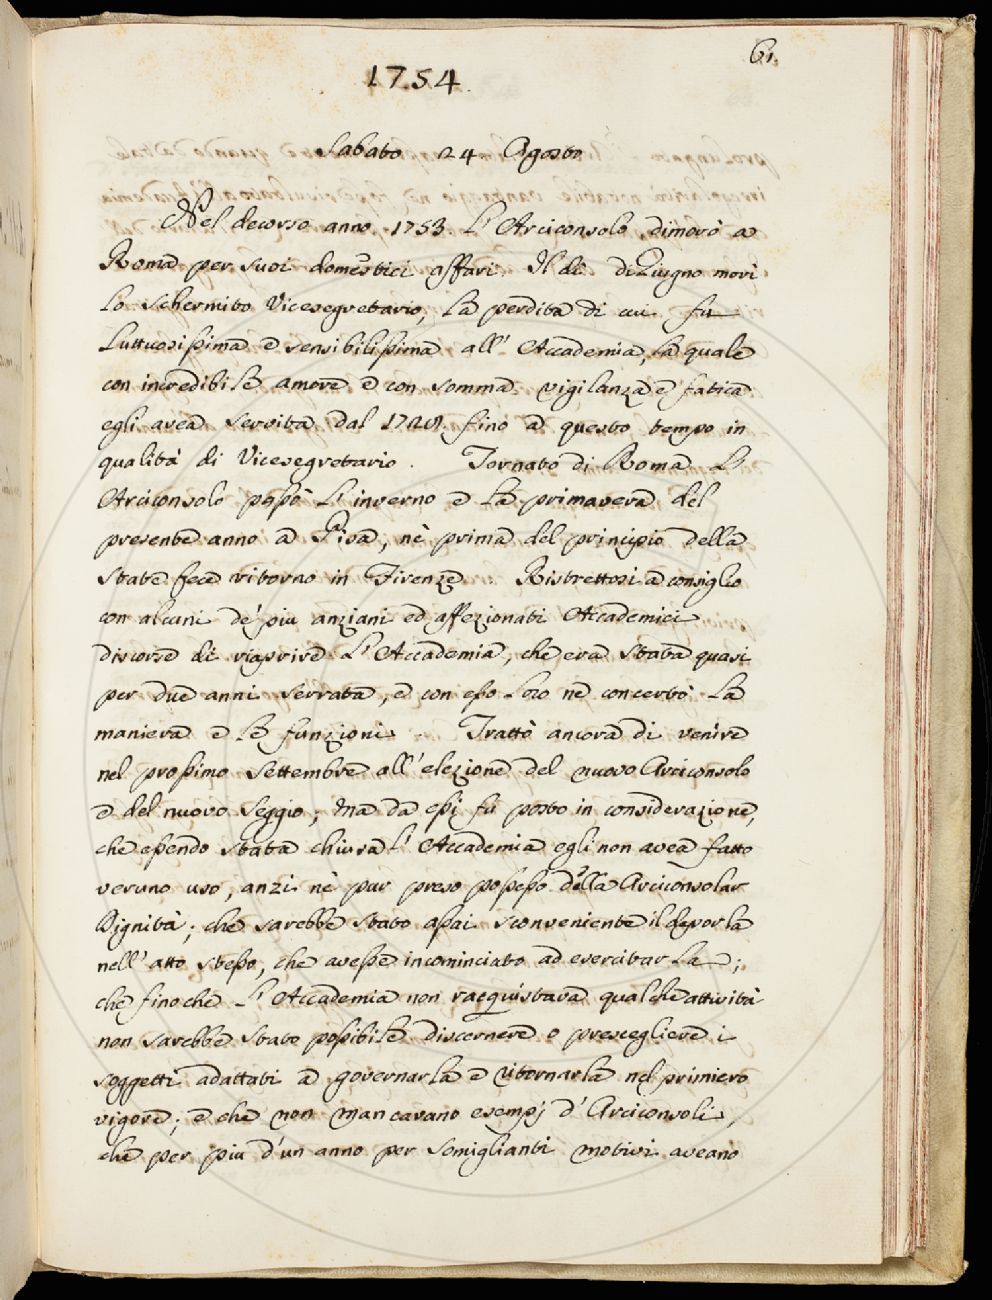 61.
1754.
Sabato 24 Agosto
Nel decorso anno 1753. L'Arciconsolo dimorò a
Roma per suoi domestici affari. Il dì di Giugno morì
lo Schermito Vicesegretario, la perdita di cui fu
luttuosissima e sensibilissima all' Accademia, la quale
con incredibile amore e con somma vigilanza e fatica
egli avea servita dal fino a questo tempo in
qualità di Vicesegretario. Tornato di Roma L'
Arciconsolo passò L'inverno e la primavera del
presente anno a Pisa, nè prima del principio della
state fece ritorno in Firenze. Ristrettosi a consiglio
con alcuni de' più anziani ed affezionati Accademici
discorse di riaprire L'Accademia, che era stata quasi
per due anni serrata, e con esso loro ne concertò la
maniera e le funzioni. Trattò ancora di venire
nel prossimo Settembre all'elezione del nuovo Arciconsolo
e del nuovo Seggio; ma da essi fu posto in considerazione,
che essendo stata chiusa L'Accademia egli non avea fatto
veruno uso, anzi nè pur preso possesso della Arciconsolar
Dignità; che sarebbe stato assai sconveniente il deporla
nell'atto stesso, che avesse incominciato ad esercitarla;
che finochè L'Accademia non racquistava qualche attività
non sarebbe stato possibile discernere o prescegliere i
soggetti adattati a governarla e ritornarla nel primiero
vigore; e che non mancavano esempj d'Arciconsoli,
che per più d'un anno per somiglianti motivi aveano